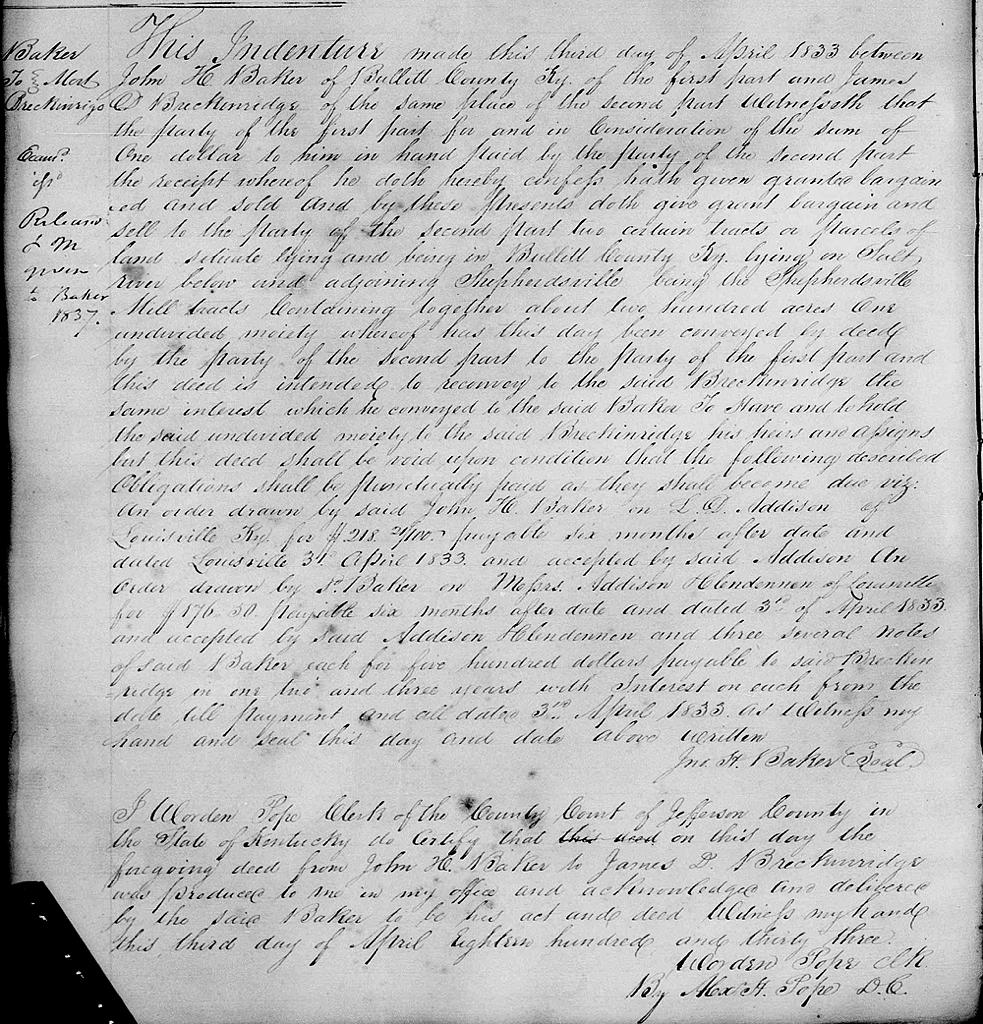 Baker
To Mort
Breckinridge
Exam.d
Release
of M
given
to Baker
1837.
This Indenture made this third day of April 1833 between
John H Baker of Bullitt County Ky. of the first part and James
D Breckinridge of the same place of the second part Witnesseth that
the party of the first part for and in Consideration of the sum of
One dollar to him in hand paid by the party of the second part
the receipt whereof he doth hereby confess hath given granted bargain
ed and sold and by these presents doth give grant bargain and
sell to the party of the second part two certain tracts or parcels of
land situate lying and being in Bullitt County Ky. lying on Salt
River below and adjoining Shepherdsville being the Shepherdsville
Mill tracts Containing together about two hundred acres One
undivided moiety whereof has this day been conveyed by deed
by the party of the second part to the party of the first part and
this deed is intended to reconvey to the said Breckinridge the
same interest which he conveyed to the said Baker To Have and to hold
the said undivided moiety to the said Breckinridge his heirs and assigns
but this deed shall be void upon condition that the following described
Obligations shall be punctually paid as they shall become due viz.
An order drawn by said John H. Baker on L. D. Addison of
Louisville Ky. for $218. /100 payable six months after date and
dated Louisville 3d April 1833 and accepted by said Addison An
order drawn by sd. Baker on Messrs. Addison & Clendennen of Louisville
for $176.50 payable six months after date and dated 3rd of April 1833
and accepted by said Addison & Clendennen and three several notes
of said Baker each for five hundred dollars payable to said Breckin
ridge in one two and three years with Interest on each from the
date till payment and all dated 3rd April 1833. As Witness my
hand and seal this day and date above Written
Jno. H. Baker Seal
I Worden Pope Clerk of the County Court of Jefferson County in
the State of Kentucky do Certify that this deed on this day the
foregoing deed from John H. Baker to James D. Breckinridge
was produced to me in my office and acknowledged and delivered
by the said Baker to be his act and deed Witness my hand
this third day of April Eighteen hundred and thirty three.
Worden Pope Clk.
By Alex H. Pope D.C.